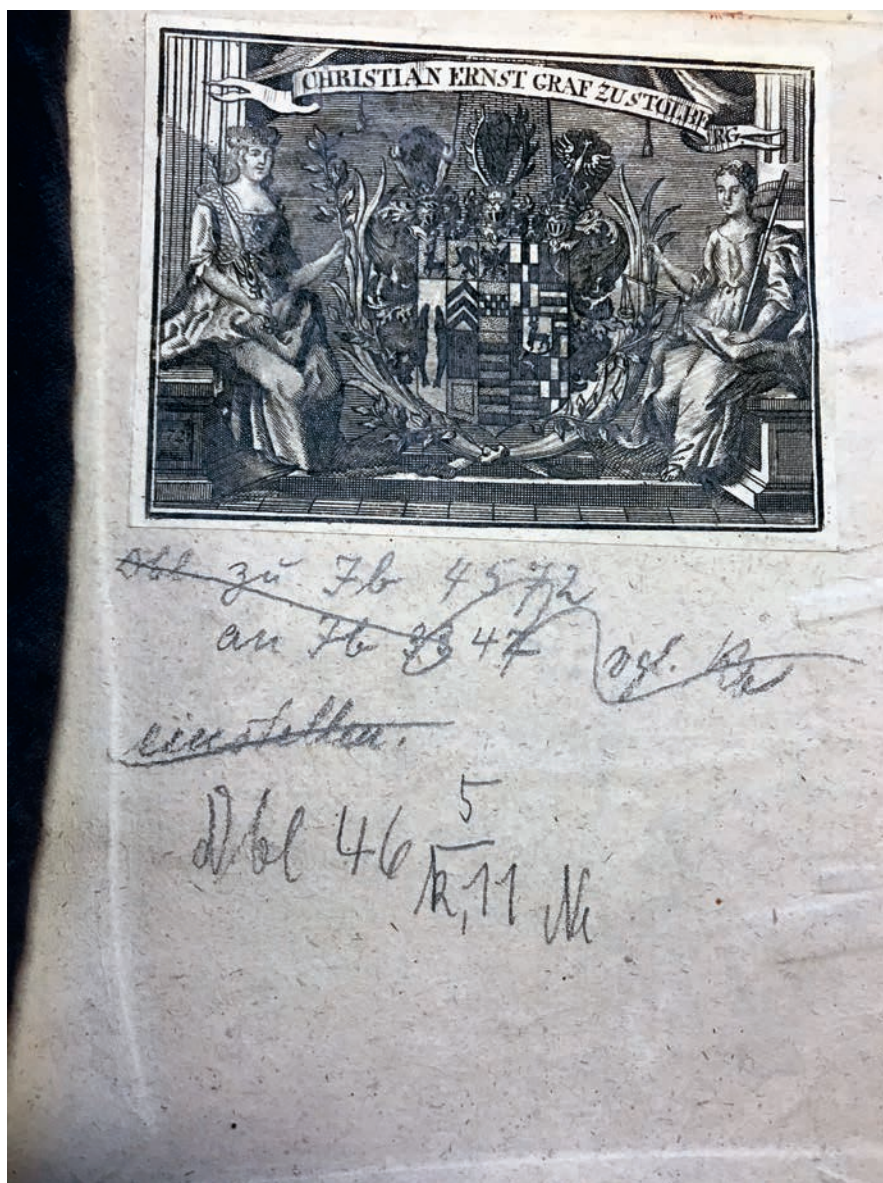 CHRISTIAN ERNST GRAF ZU STOLBERG.
Dbl zu Jb 4572
an Jb 3347 vgl. 
einstellen.
Dbl 46 5
k,11